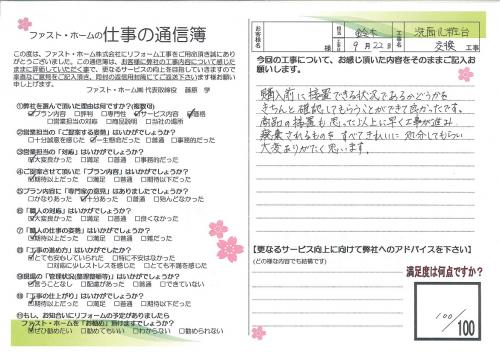 ファスト・ホームの仕事の通信簿
この度は、ファスト・ホーム株式会社にリフォーム工事をご用命頂き誠にあり
がとうございました。この通信簿は、お客様に工事についてご感想をありの
ままに評価していただく事で、更なるサービス向上を目指していきますので
率直なご意見をご記入頂き、同封の返信用封筒にてご返送下さいます様お願
い申し上げます。
ファスト・ホーム㈱ 代表取締役 藤原 学
①弊社を選んで頂いた理由は何ですか?(複数可)
□プラン内容 □評判 □専門性 ☑サービス内容 ☑価格
□営業担当の対応 □商品説明 □当社の場所
②営業担当の「ご提案する姿勢」はいかがでしょうか?
□十分誠意を感じた ☑一生懸命だった □普通 □事務的だった
③営業担当の「対応」はいかがでしょうか?
☑大変良かった □満足 □普通 □事務的だった
④ご提案させて頂いた「プラン」はいかがでしょうか?
☑期待以上だった □満足 □普通 □期待以下だった
⑤プラン内容に「専門家の意見」はありましたでしょうか?
□かなりあった ☑十分あった □普通 □殆んどなかった
⑥「職人の対応」はいかがでしょうか?
☑大変良かった □満足 □普通 □良くなかった
⑦「職人の仕事の姿勢」はいかがでしょうか?
☑期待以上だった □満足 □普通 □雑だった
⑧「工事の進め方」はいかがでしたでしょうか?
☑とても安心していられた □特に不安はなかった
□対応に少しストレスを感じた □とても不満を感じた
⑨現場の「管理状況(整理整頓等)」はいかがでしょうか?
☑言うことなし □配慮があった □普通 □できていない
⑩「工事の仕上がり」はいかがでしょうか?
☑期待以上だった □満足 □普通 □期待以下だった
⑪もし、お知合いにリフォームの予定がありましたら
ファスト・ホームを「お勧め」頂けますでしょうか?
☑ぜひ勧めたい □勧めてもいい □わからない □勧められない
お客様名
鈴木
様
施工日
9月22日
工事名
洗面化粧台
交換
工事
今回の工事について、お感じ頂いた内容をそのままご記入お
願いします。
購入前に設置できる状況であるのかどうかを
きちんと確認してもらうことができて良かったです。
商品の設置も思った以上に早く工事が進み、
廃棄されるものをすべてきれいに処分してもらい
大変ありがたく思います。
【更なるサービス向上に向けて弊社へのアドバイスを下さい】
(どの様な内容でも結構です)
満足度は何点ですか?
100/100